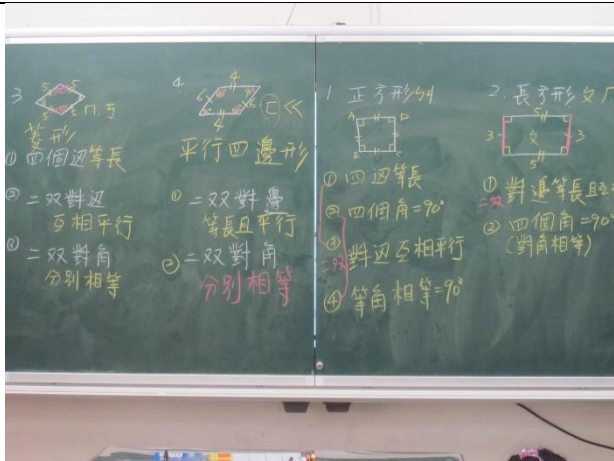 3
5 5
5 5
ㄇ.ㄎ
菱形
① 四個边等長
② 二双對边
互相平行
③ 二双對角
分別相等
4
4
6 6
4
ㄈ ㄍ
平行四邊形
① 二双對邊
等長且平行
② 二双對角
分別相等
1. 正方形
A D
B C
① 四边等長
② 四個角=90°
③
二双 對边互相平行
④ 等角相等=90°
2. 長方形
5
3 3
5
① 對邊等長且
二双
② 四個角=90
(對角相等)